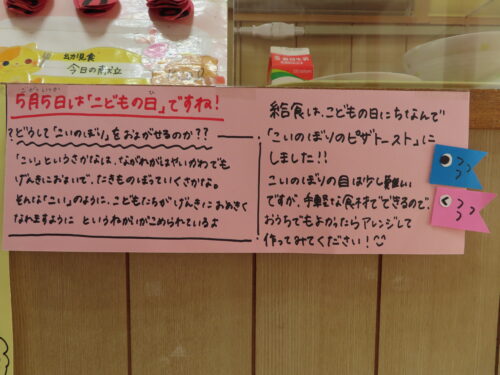 出力見食
今日の献立
ごがついつか
ひ
5月5日は「こどもの日」ですね!
?どうして「こいのぼり」をおよがせるのか??
「こい」というさかなは、ながれがはやいかわでも
げんきにおよいで、たきものぼっていくさかな。
そんな「こい」のように、こどもたちがげんきにおおきく
なれますように というねがいがこめられているよ
給食は、こどもの日にちなんで
「こいのぼりのピザトースト」に
しました!!
こいのぼりの目は少し難しい
ですが、手軽な食材でできるので、
おうちでもよかったらアレンジして
作ってみてください!